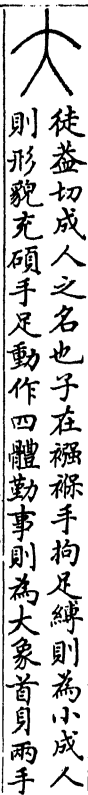 大
徒葢切成人之名也子在襁褓手拘足縛則為小成人
則形貌充碩手足動作四體勤事則為大象首身兩手